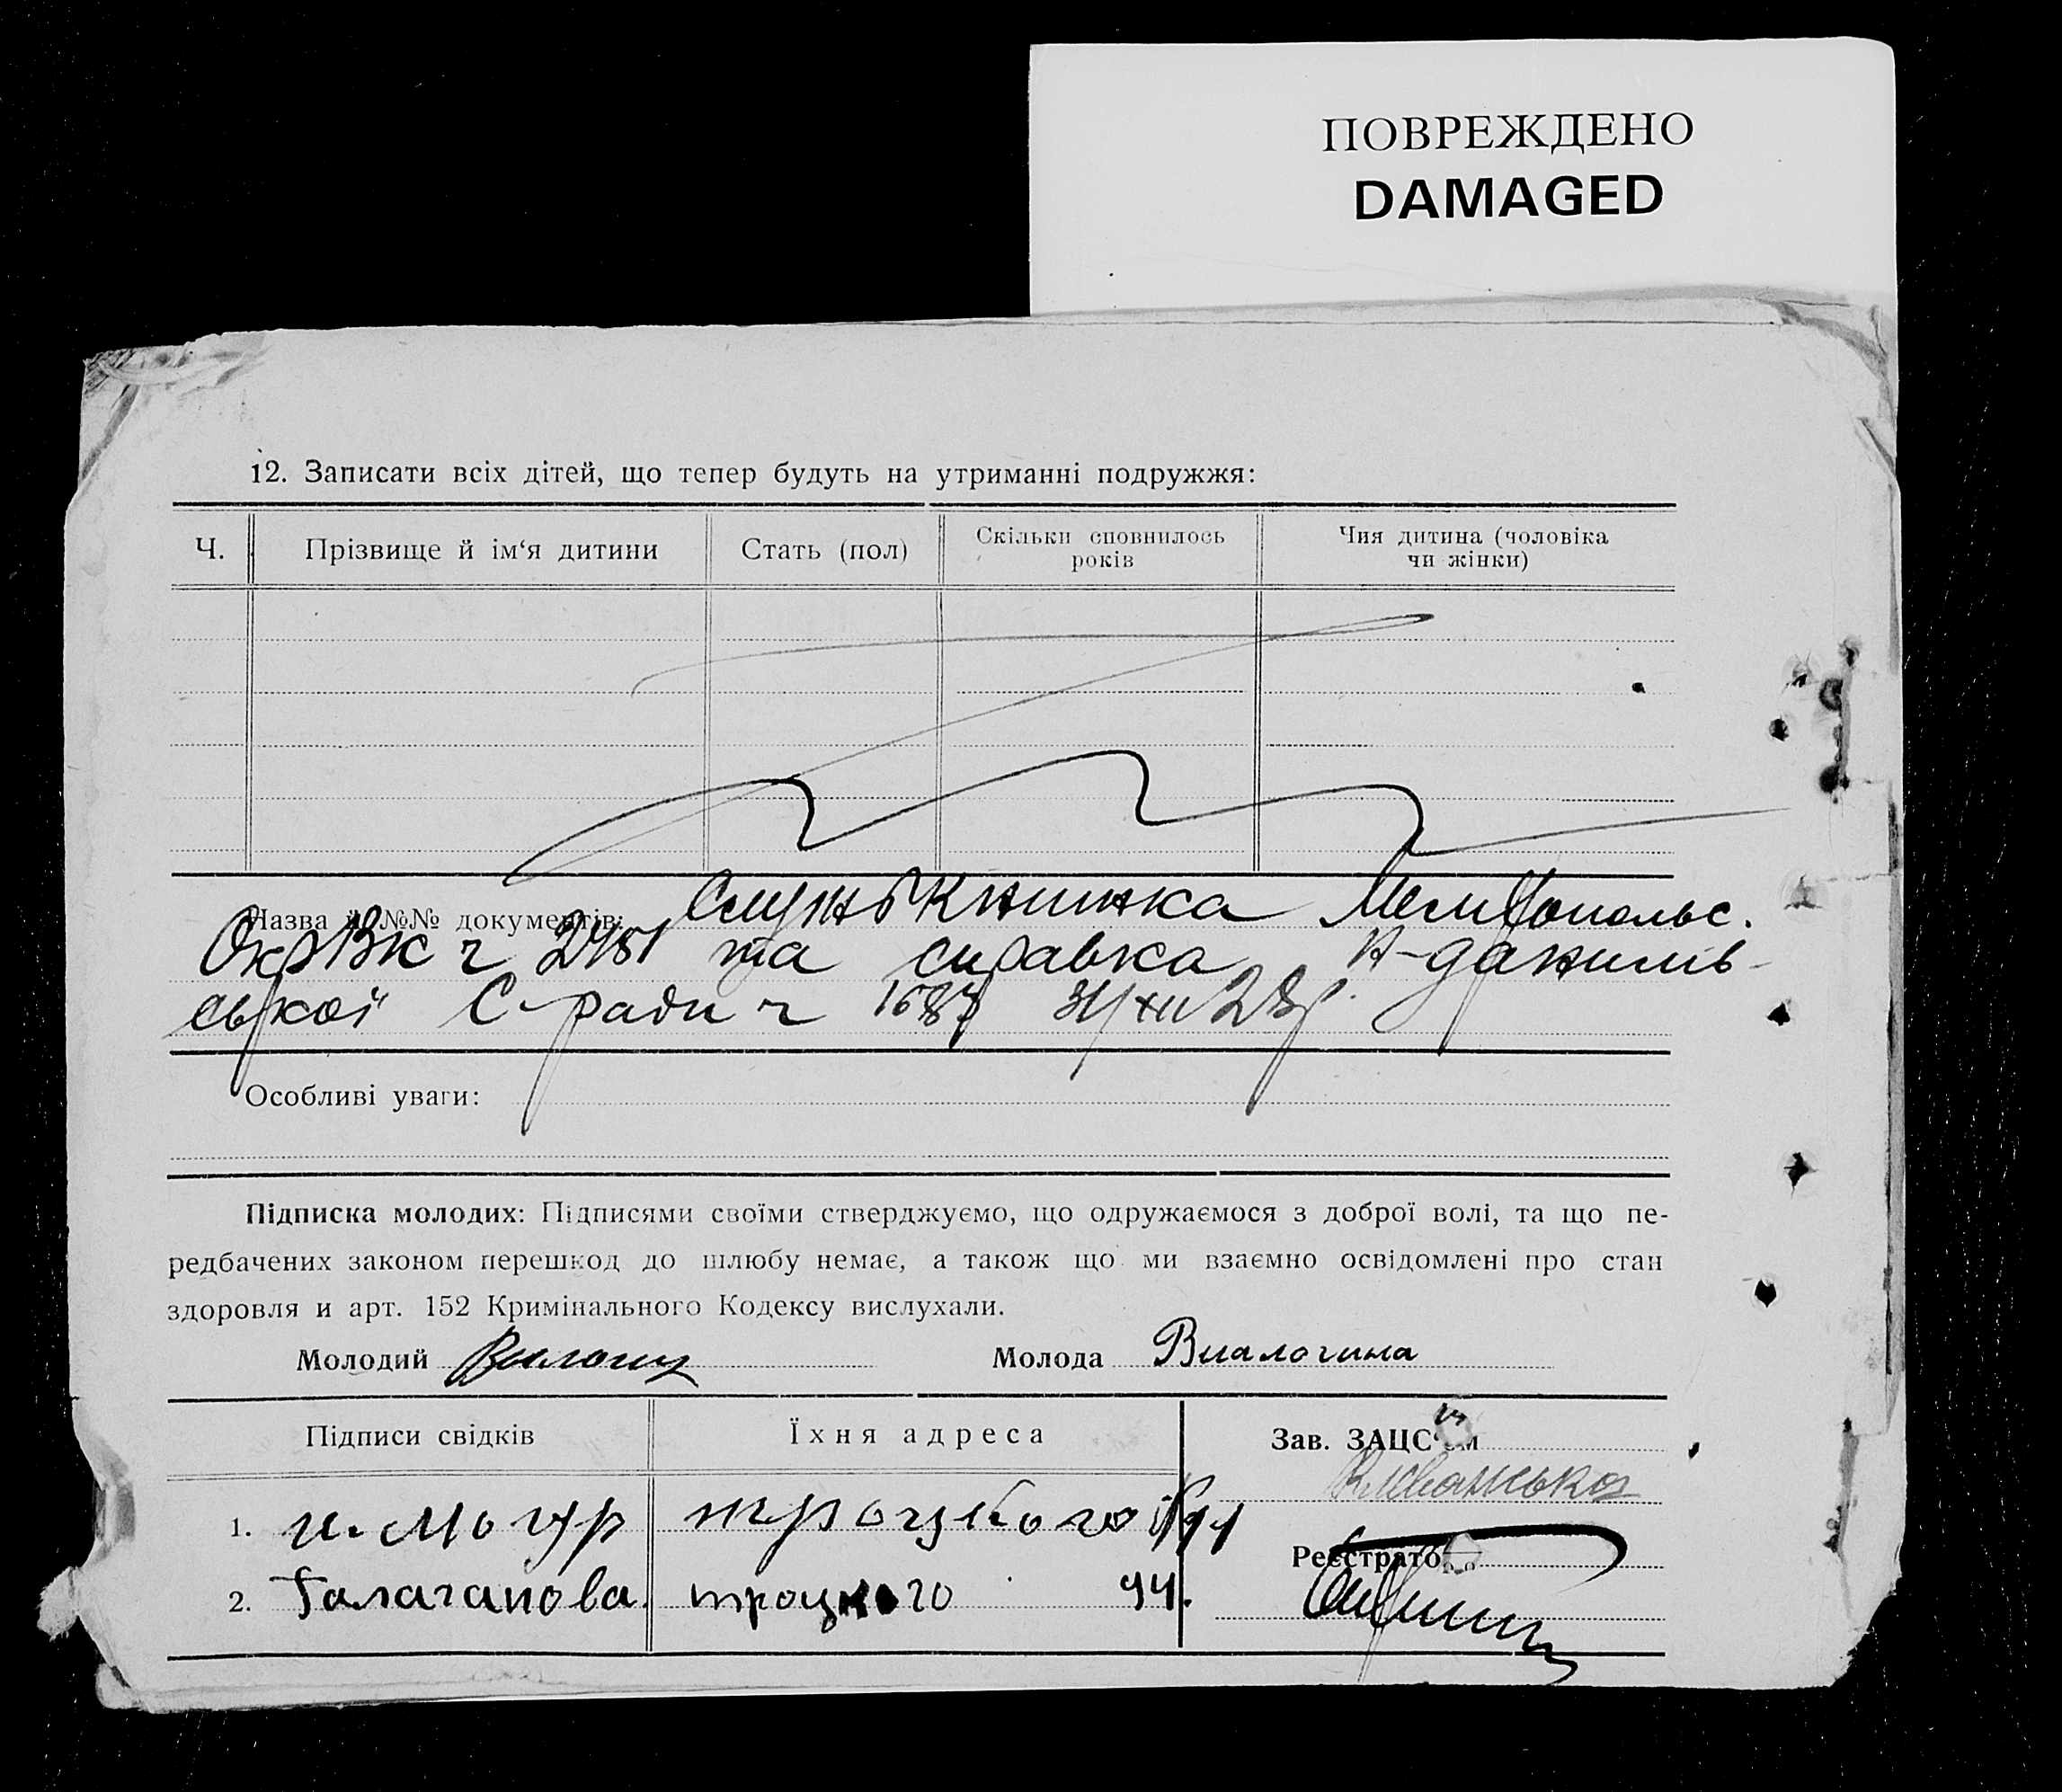 ПОВРЕЖДЕНО
DAMAGED
12. Записати всіх дітей, що тепер будуть на утриманні подружжя:
Ч. Прізвище й ім‘я дитини Стать (пол) Скільки сповнилось років Чия дитина (чоловіка чи жінки)
Назва й №№ документів: Служб книжка Мелітопольс.
ОкрВк ч 2451 та справка Н-данилів-
ської С-ради ч 31/XII 28р.
Особливі уваги:
Підписка молодих: Підписями своїми стверджуємо, що одружаємося з доброї волі, та що пе-
редбачених законом перешкод до шлюбу немає, а також що ми взаємно освідомлені про стан
здоровля и арт. 152 Кримінального Кодексу вислухали.
Молодий Молода Виалогина
Підписи свідків Їхня адреса Зав. ЗАЦС‘ом
1. и. Могур троцкого 94
Реєстратор
2. Галаганова. троцкого 94.